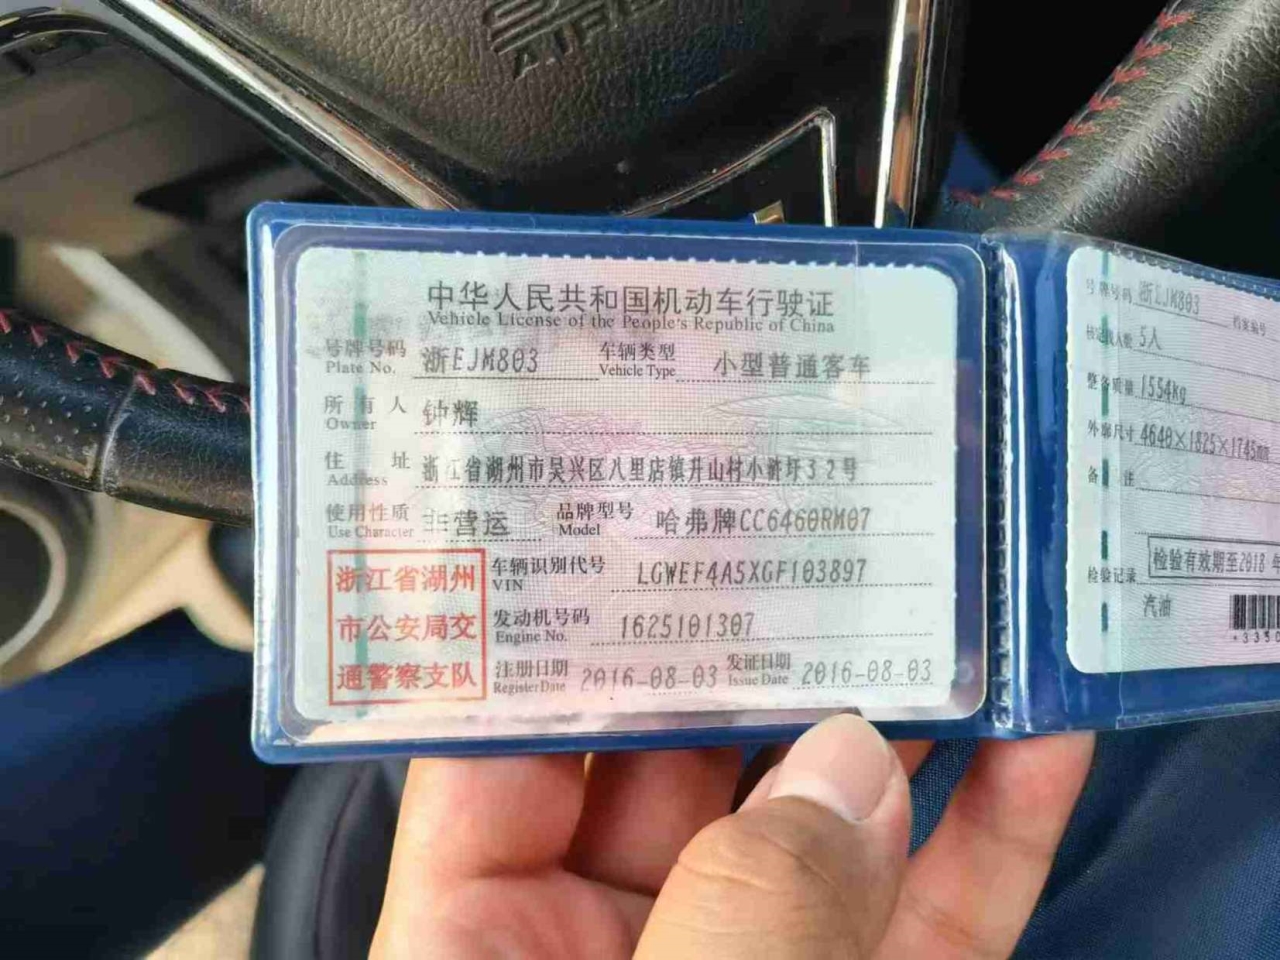 AIRB
中华人民共和国机动车行驶证
Vehicle License of the People's Republic of China
号牌号码 浙EJM803 车辆类型 小型普通客车
Plate No. Vehicle Type
所有人 钟辉
Owner
住址 浙江省湖州市吴兴区八里店镇升山村小浒圩32号
Address
使用性质 非营运 品牌型号 哈弗牌CC6460RM07
Use Character Model
浙江省湖州
市公安局交
通警察支队
车辆识别代号 LGWEF4A5XGF103897
VIN
发动机号码 1625101307
Engine No.
注册日期 2016-08-03 发证日期 2016-08-03
Register Date Issue Date
号牌号码 浙EJM803 档案编号
核定载人数 5人
整备质量 1554Kg
外廓尺寸 4640×1825×1745mm
备注
检验记录 检验有效期至2018年
汽油